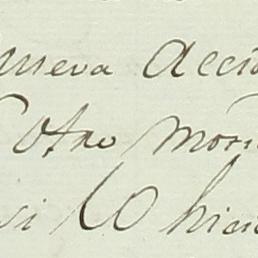 nueva Accio
Otro Moti
si lo hici